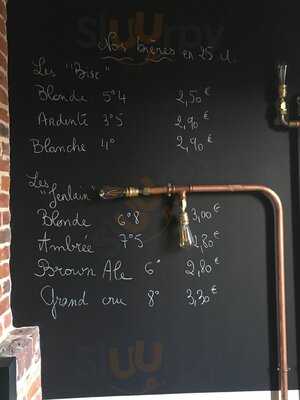 Nos bières en 25 cl.
Les "Bisc"
Blonde 5°4 2,50€
Ardente 3°5 2,90€
Blanche 4° 2,90€
Les "Jenlain"
Blonde 6°8 3,00€
Ambrée 7°5 2,80€
Brown Ale 6° 2,80€
Grand cru 8° 3,30€